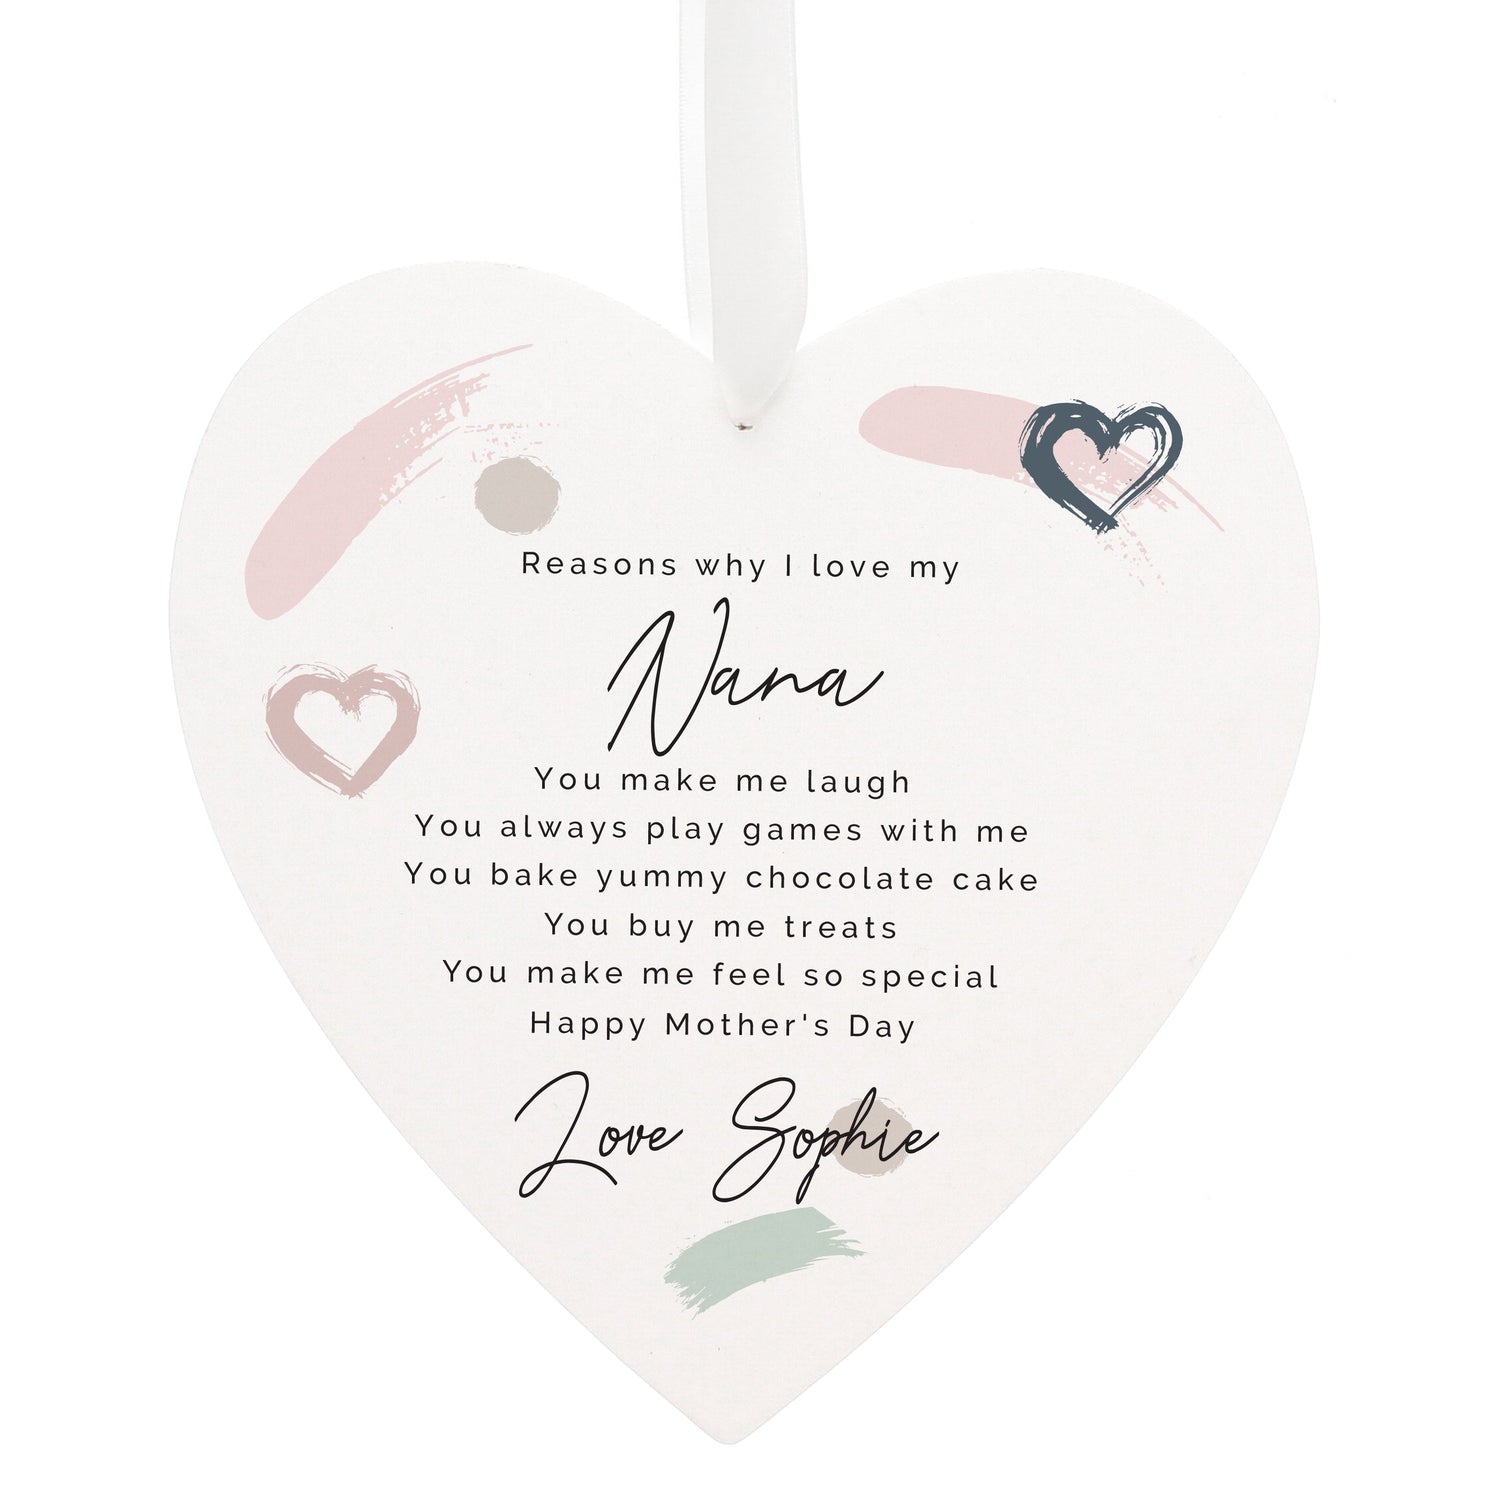 Reasons why I love my
Nana
You make me laugh
You always play games with me
You bake yummy chocolate cake
You buy me treats
You make me feel so special
Happy Mother's Day
Love Sophie